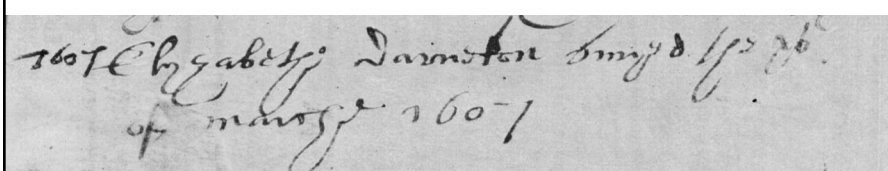 1607 Elyzabethe Darneton buryed the
of marche 1607